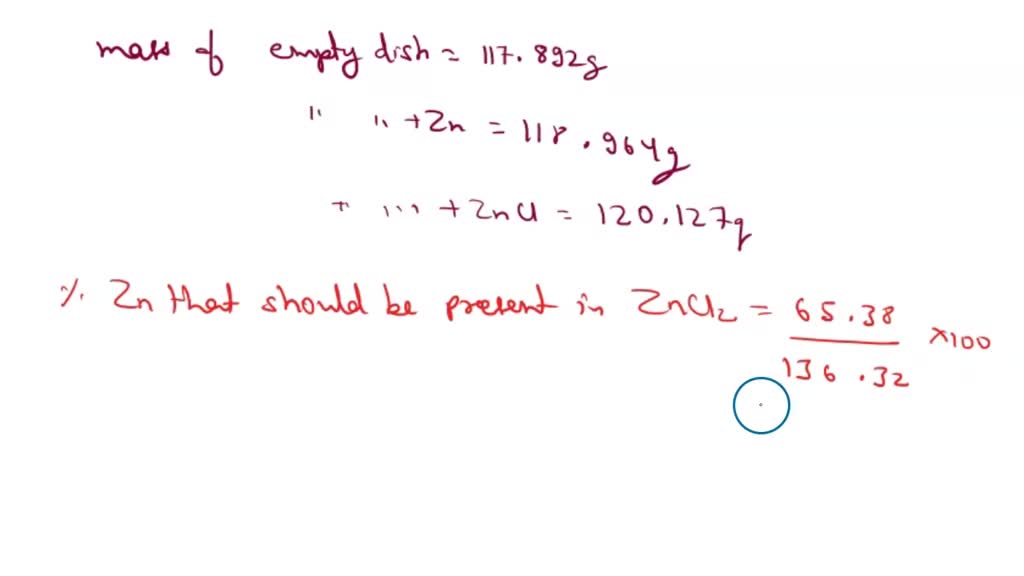 mass of empty dish = 117.892g
" " + Zn = 118.964g
" "' + ZnCl = 120.127g
% Zn that should be present in ZnCl2 = 65.38 / 136.32 ×100